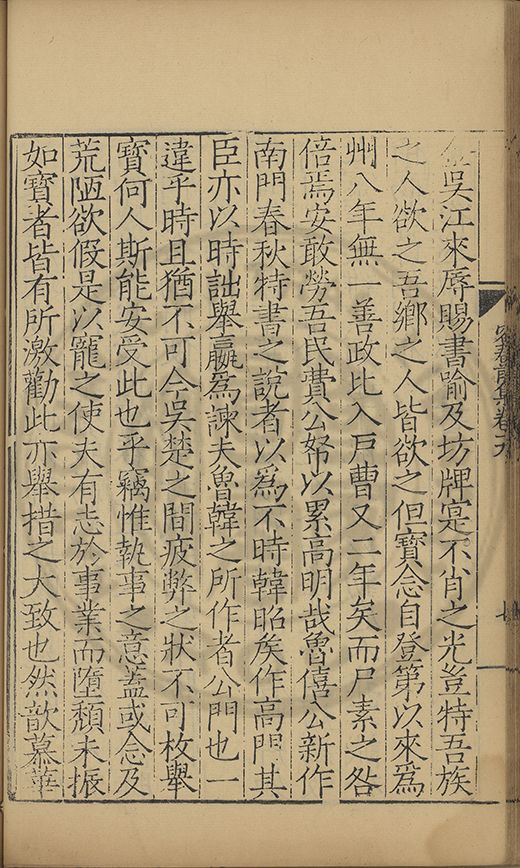 吳江來辱賜書喻及坊牌寔不肖之光豈特吾族
之人欲之吾鄉之人皆欲之但寶念自登第以來爲
州八年無一善政比入戶曹又二年矣而尸素之咎
倍焉安敢勞吾民費公帑以累高明哉魯僖公新作
南門春秋特書之說者以爲不時韓昭矦作高門其
臣亦以時詘舉嬴爲諫夫魯韓之所作者公門也一
違乎時且猶不可今吳楚之間疲弊之狀不可枚舉
寶何人斯能安受此也乎竊惟執事之意蓋或念及
荒陋欲假是以寵之使夫有志於事業而墮頹未振
如寶者皆有所激勸此亦舉措之大致也然歆慕華